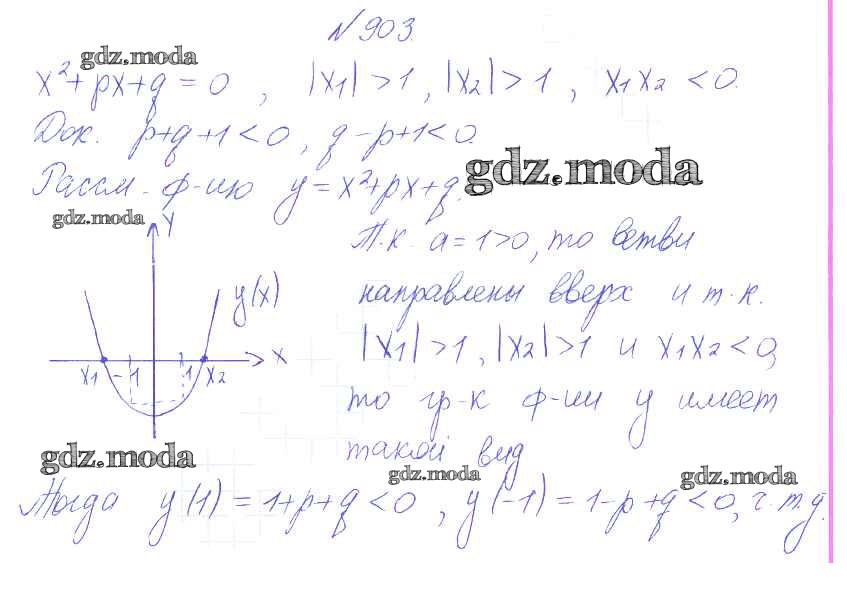 № 903.
gdz.moda
x²+px+q=0, |x₁|>1, |x₂|>1, x₁x₂<0.
Док. p+q+1<0, q-p+1<0.
Рассм. ф-ию y=x²+px+q.
gdz.moda
gdz.moda
y
Т.к. a=1>0, то ветви
y(x)
направлены вверх и т.к.
|x₁|>1, |x₂|>1 и x₁x₂<0,
x
x₁ -1 1 x₂
то гр-к ф-ии y имеет
такой вид
gdz.moda
gdz.moda
gdz.moda
Тогда y(1)=1+p+q<0, y(-1)=1-p+q<0, ч.т.д.